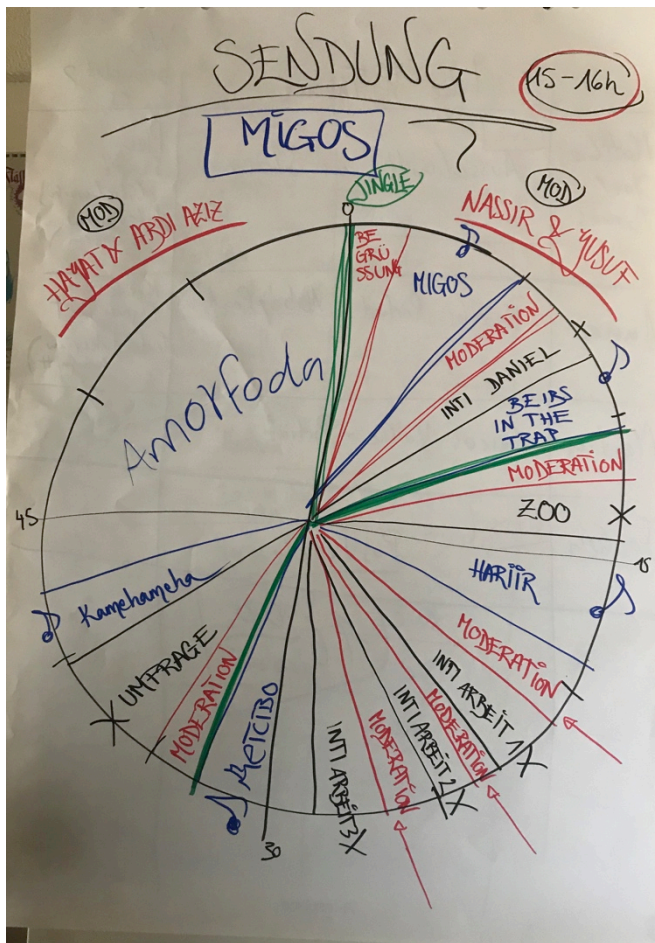 SENDUNG
15-16h
MIGOS
JINGLE
MOD
HAYAT & ABDI AZIZ
MOD
NASSIR & YUSUF
0
BE
GRÜ
SSUNG
MIGOS
MODERATION
INTI DANIEL
BEIBS
IN THE
TRAP
MODERATION
ZOO
15
HARIIR
MODERATION
INTI ARBEIT 1
MODERATION
INTI ARBEIT 2
MODERATION
INTI ARBEIT 3
30
METCIBO
MODERATION
UMFRAGE
Kamehameha
45
Amorfoda